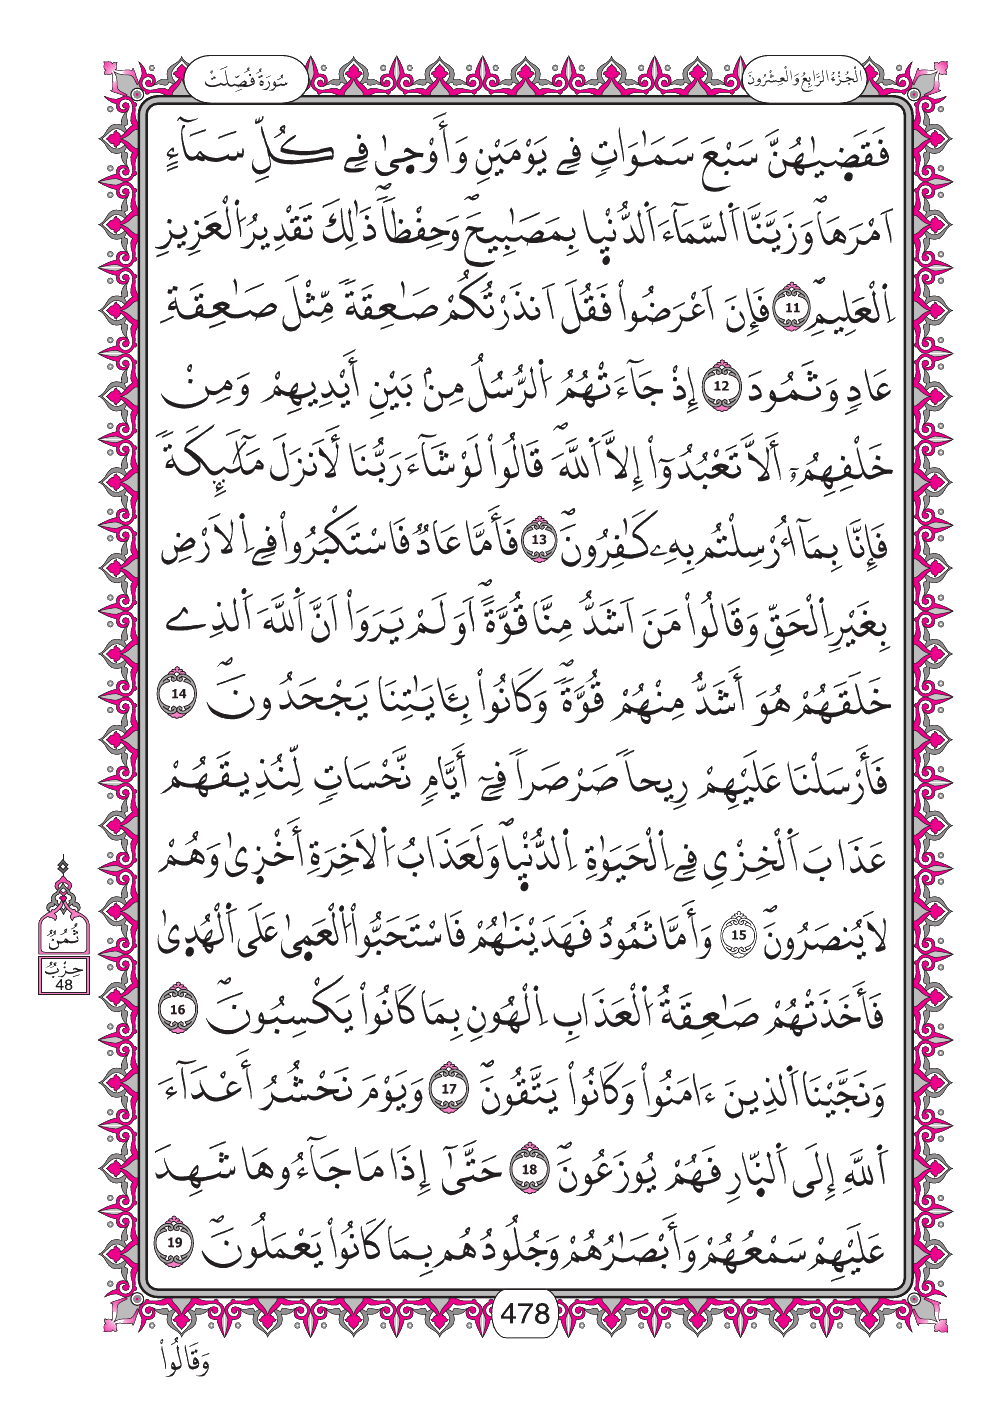 سُورَةُ فُصِّلَتْ
الْجُزْءُ الرَّابِعُ وَالْعِشْرُونَ
فَقَضِيٰهُنَّ سَبْعَ سَمَٰوَاتٖ فِے يَوْمَيْنِ وَأَوْحٜيٰ فِے كُلِّ سَمَآءٍ
اَمْرَهَاۖ وَزَيَّنَّا اَ۬لسَّمَآءَ اَ۬لدُّنْيٜا بِمَصَٰبِيحَۖ وَحِفْظاٗۖ ذَٰلِكَ تَقْدِيرُ اُ۬لْعَزِيزِ
اِ۬لْعَلِيمِۖ 11 فَإِنَ اَعْرَضُواْ فَقُلَ اَنذَرْتُكُمْ صَٰعِقَةٗ مِّثْلَ صَٰعِقَةِ
عَادٖ وَثَمُودَ 12 إِذْ جَآءَتْهُمُ اُ۬لرُّسُلُ مِنۢ بَيْنِ أَيْدِيهِمْ وَمِنْ
خَلْفِهِمُۥٓ أَلَّا تَعْبُدُوٓاْ إِلَّا اَ۬للَّهَۖ قَالُواْ لَوْ شَآءَ رَبُّنَا لَأَنزَلَ مَلَٰٓئِكَةٗ
فَإِنَّا بِمَآ أُرْسِلْتُم بِهِۦ كَٰفِرُونَۖ 13 فَأَمَّا عَادٞ فَاسْتَكْبَرُواْ فِے اِ۬لَارْضِ
بِغَيْرِ اِ۬لْحَقِّ وَقَالُواْ مَنَ اَشَدُّ مِنَّا قُوَّةًۖ اَوَلَمْ يَرَوَاْ اَنَّ اَ۬للَّهَ اَ۬لذِے
خَلَقَهُمْ هُوَ أَشَدُّ مِنْهُمْ قُوَّةٗۖ وَكَانُواْ بِـَٔايَٰتِنَا يَجْحَدُونَۖ 14
فَأَرْسَلْنَا عَلَيْهِمْ رِيحاٗ صَرْصَراٗ فِےٓ أَيَّامٖ نَّحْسَاتٖ لِّنُذِيقَهُمْ
عَذَابَ اَ۬لْخِزْيِ فِے اِ۬لْحَيَوٰةِ اِ۬لدُّنْيٜاۖ وَلَعَذَابُ اُ۬لَاخِرَةِ أَخْزٜيٰ وَهُمْ
لَا يُنصَرُونَۖ 15 وَأَمَّا ثَمُودُ فَهَدَيْنَٰهُمْ فَاسْتَحَبُّواْ اُ۬لْعَمٜيٰ عَلَى اَ۬لْهُدٜيٰ
فَأَخَذَتْهُمْ صَٰعِقَةُ اُ۬لْعَذَابِ اِ۬لْهُونِ بِمَا كَانُواْ يَكْسِبُونَۖ 16
وَنَجَّيْنَا اَ۬لذِينَ ءَامَنُواْ وَكَانُواْ يَتَّقُونَۖ 17 وَيَوْمَ نَحْشُرُ أَعْدَآءَ
اَ۬للَّهِ إِلَى اَ۬لنّٜارِ فَهُمْ يُوزَعُونَۖ 18 حَتَّيٰٓ إِذَا مَا جَآءُوهَا شَهِدَ
عَلَيْهِمْ سَمْعُهُمْ وَأَبْصَٰرُهُمْ وَجُلُودُهُم بِمَا كَانُواْ يَعْمَلُونَۖ 19
ثُمُنْ
حِزْبْ
48
478
وَقَالُواْ